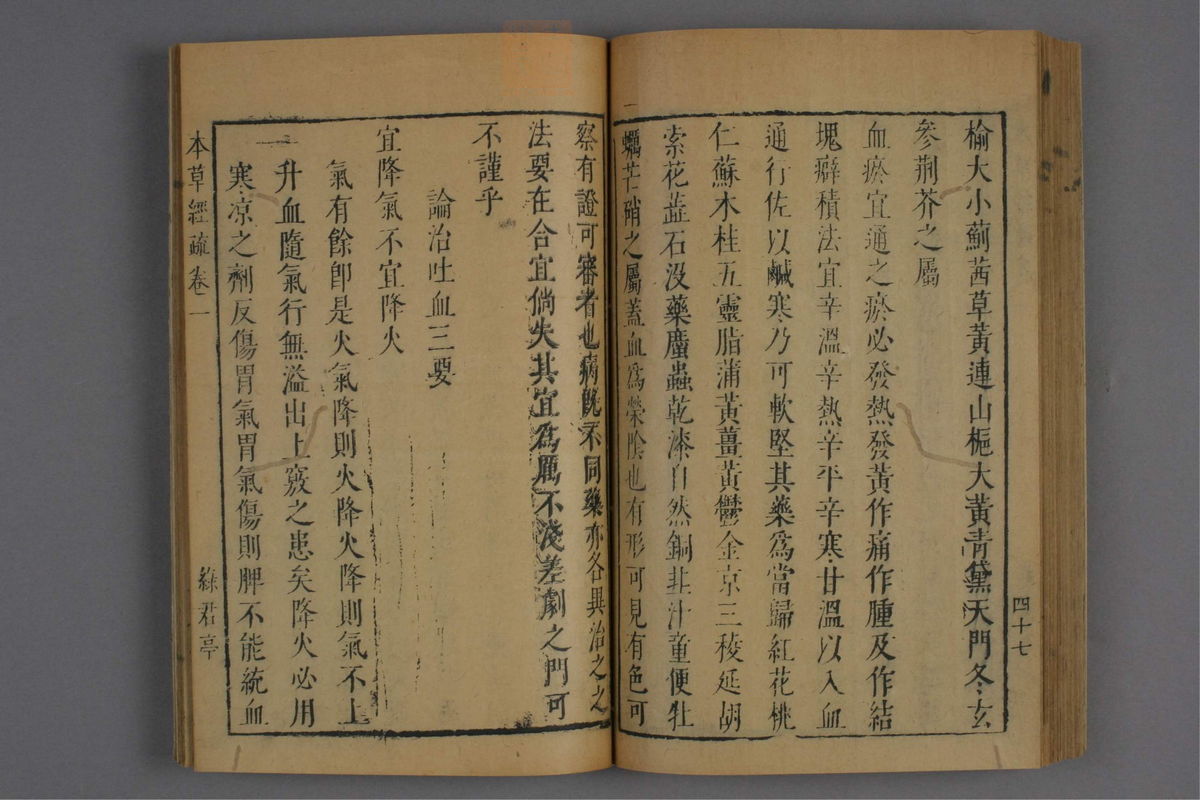 榆大小薊茜草黃連山梔大黃青黛天門冬玄
參荆芥之屬
血瘀宜通之瘀必發熱發黃作痛作腫及作結
塊癖積法宜辛溫辛熱辛平辛寒甘溫以入血
通行佐以鹹寒乃可軟堅其藥爲當歸紅花桃
仁蘇木桂五靈脂蒲黃薑黃鬱金京三稜延胡
索花蕋石没藥䗪蟲乾漆自然銅韭汁童便牡
蠣芒硝之屬蓋血爲榮陰也有形可見有色可
四十七
察有證可審者也病既不同藥亦各異治之之
法要在合宜倘失其宜爲厲不淺差劇之門可
不謹乎
論治吐血三要
宜降氣不宜降火
氣有餘卽是火氣降則火降火降則氣不上
升血隨氣行無溢出上竅之患矣降火必用
寒凉之劑反傷胃氣胃氣傷則脾不能統血
本草經疏卷一
綠君亭